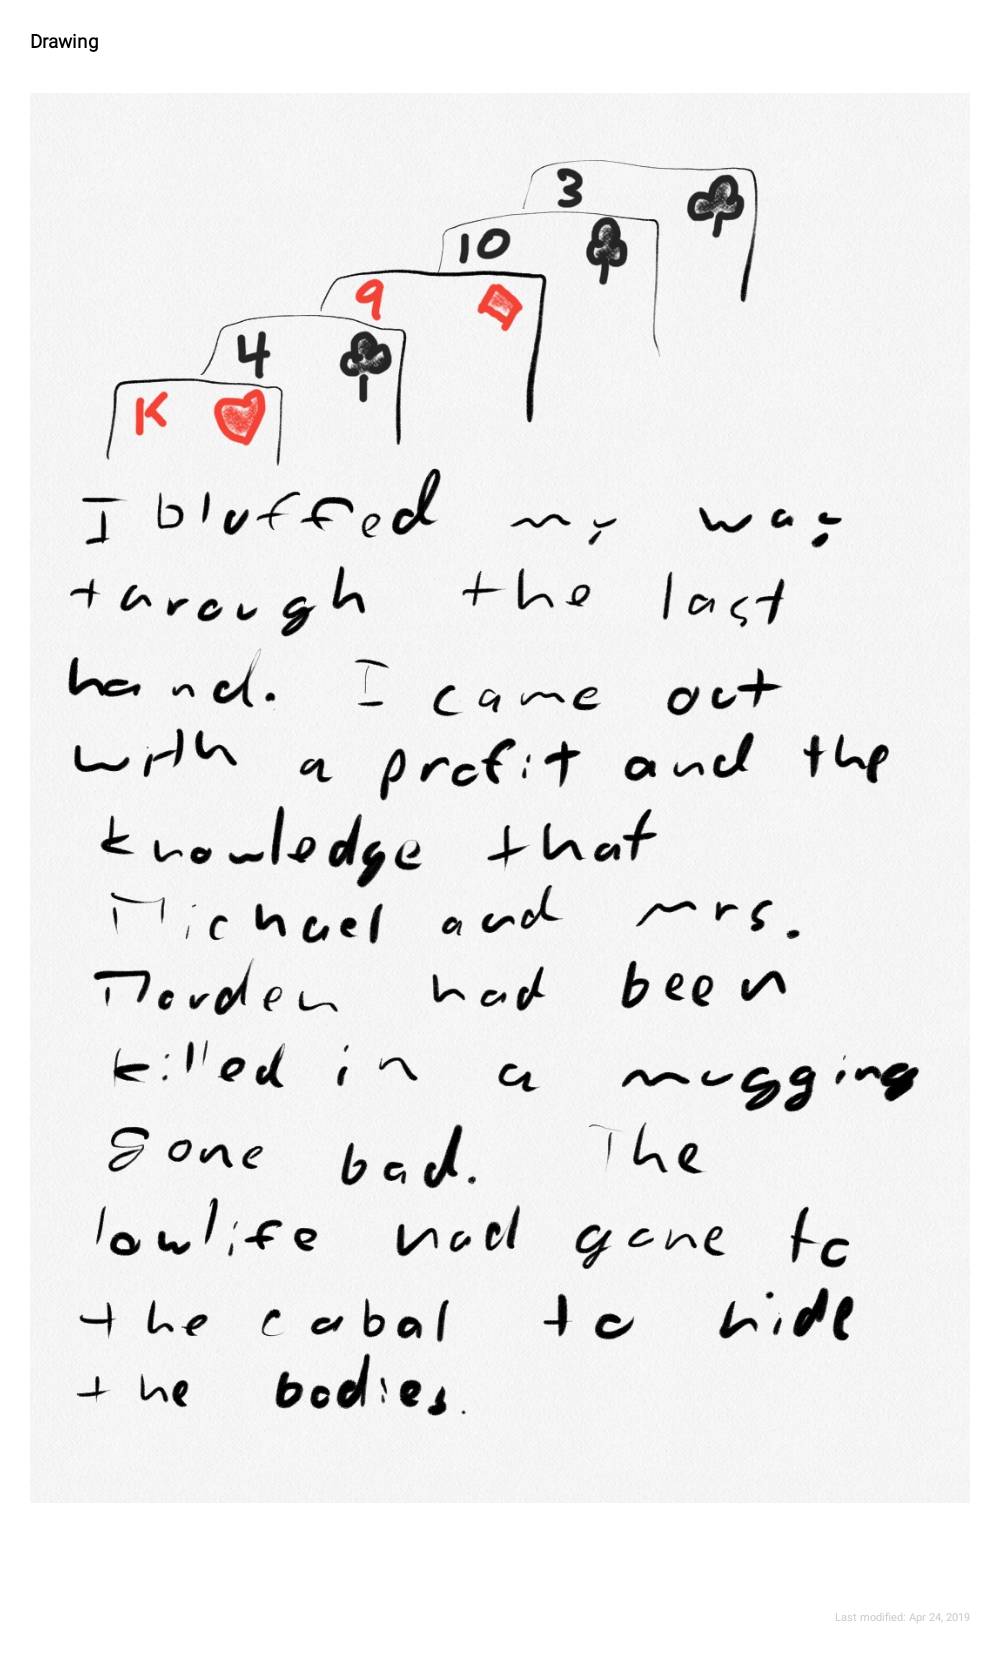 Drawing
3
10
9
4
K
I bluffed my way
through the last
hand. I came out
with a profit and the
knowledge that
Michael and Mrs.
Morden had been
killed in a mugging
gone bad. The
lowlife had gone to
the cabal to hide
the bodies.
Last modified: Apr 24, 2019